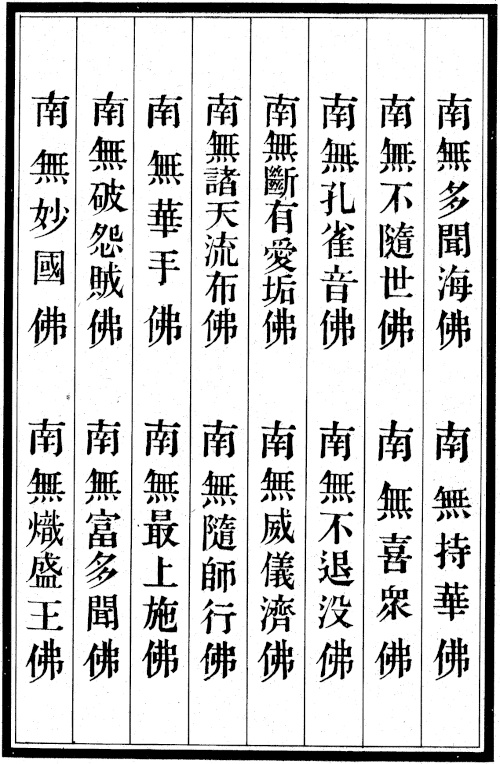 南無多聞海佛 南無持華佛
南無不隨世佛 南無喜衆佛
南無孔雀音佛 南無不退没佛
南無斷有愛垢佛 南無威儀濟佛
南無諸天流布佛 南無隨師行佛
南無華手佛 南無最上施佛
南無破怨賊佛 南無富多聞佛
南無妙國佛 南無熾盛王佛